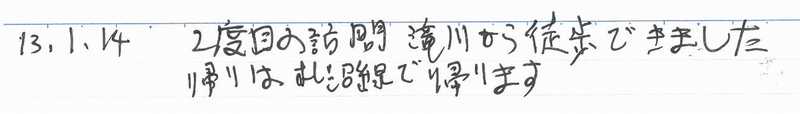 13.1.14 2度目の訪問 滝川から徒歩できました
帰りは札沼線で帰ります